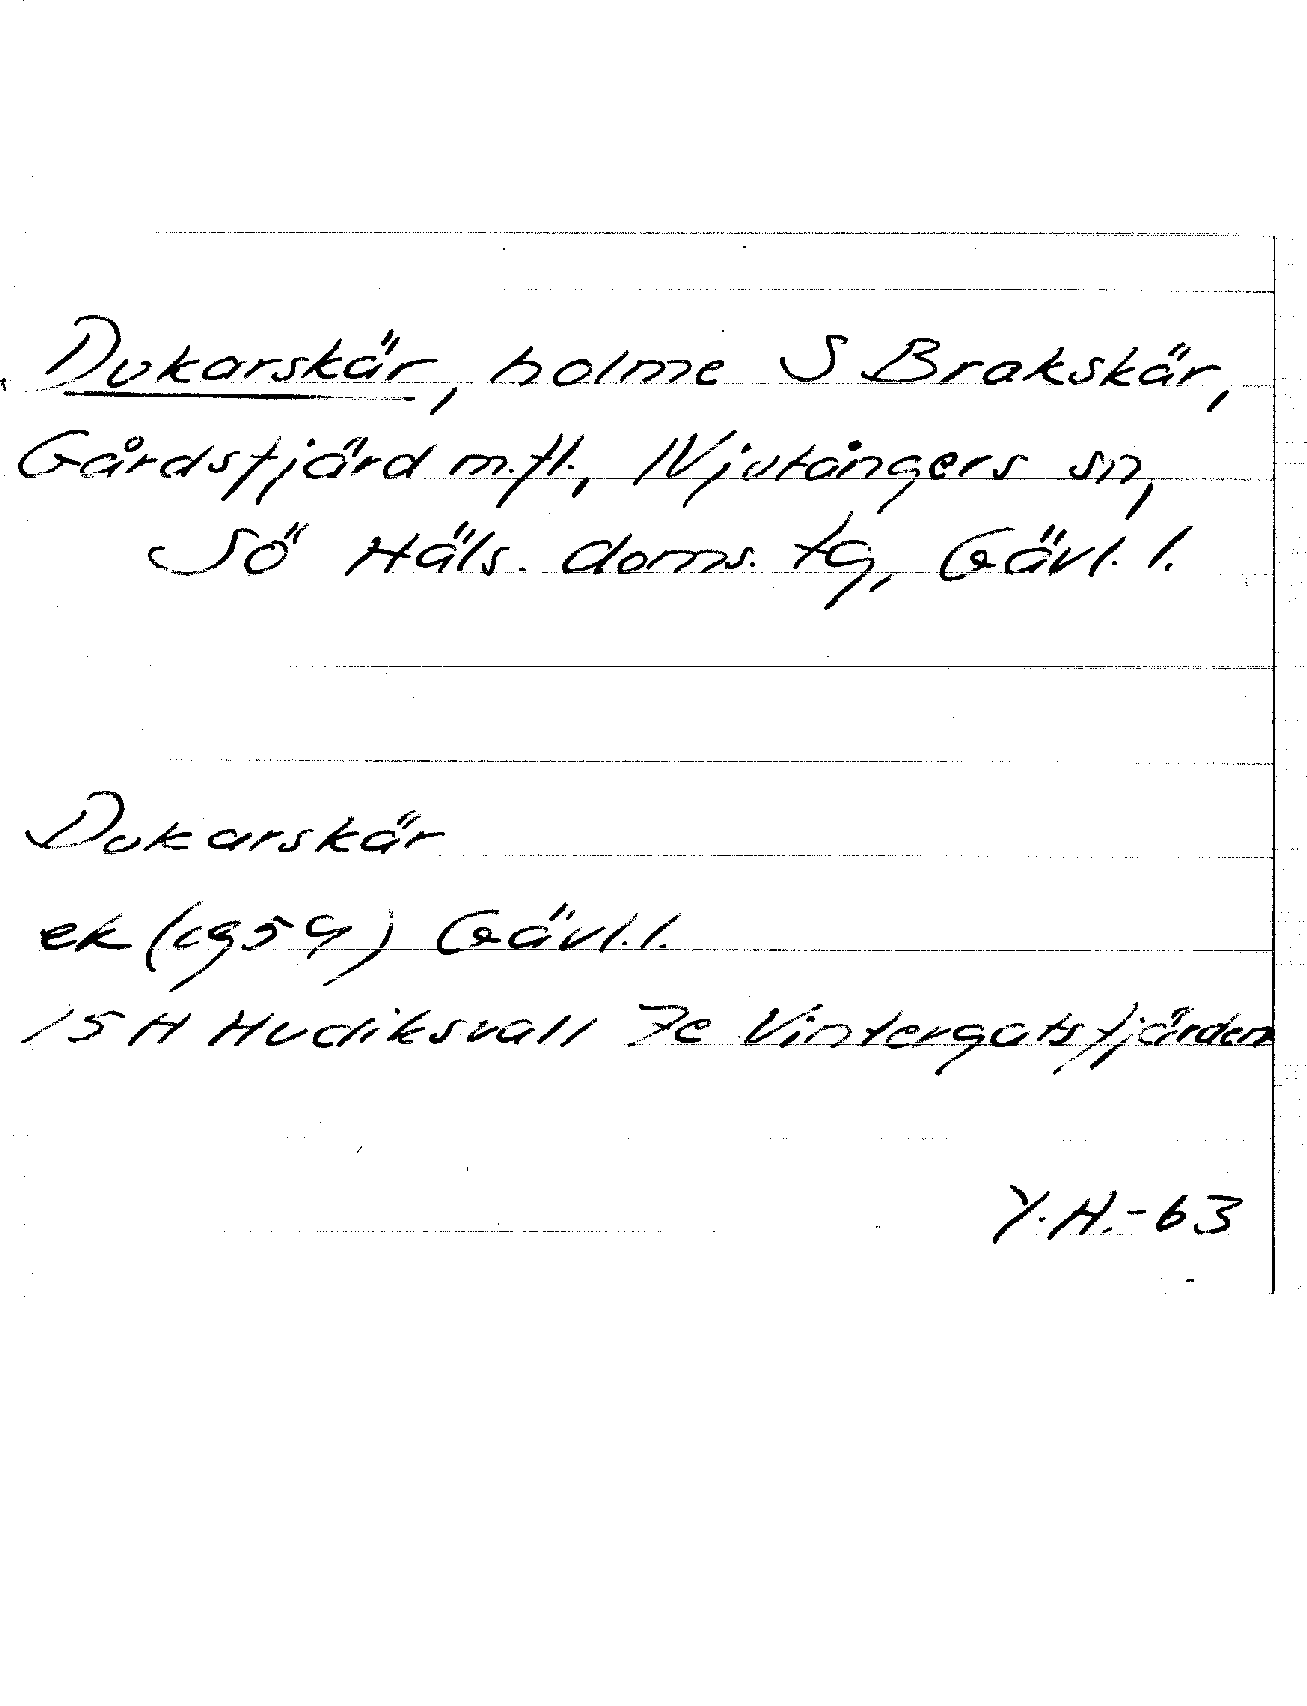 Dukarskär, holme S Brakskär,
Gårdsfjärd m.fl., Njutångers sn,
Sö Häls. doms. tg, Gävl. l.
Dukarskär
ek (1959) Gävl. l.
15 H Hudiksvall 7c Vintergatsfjärden
Y.H.-63